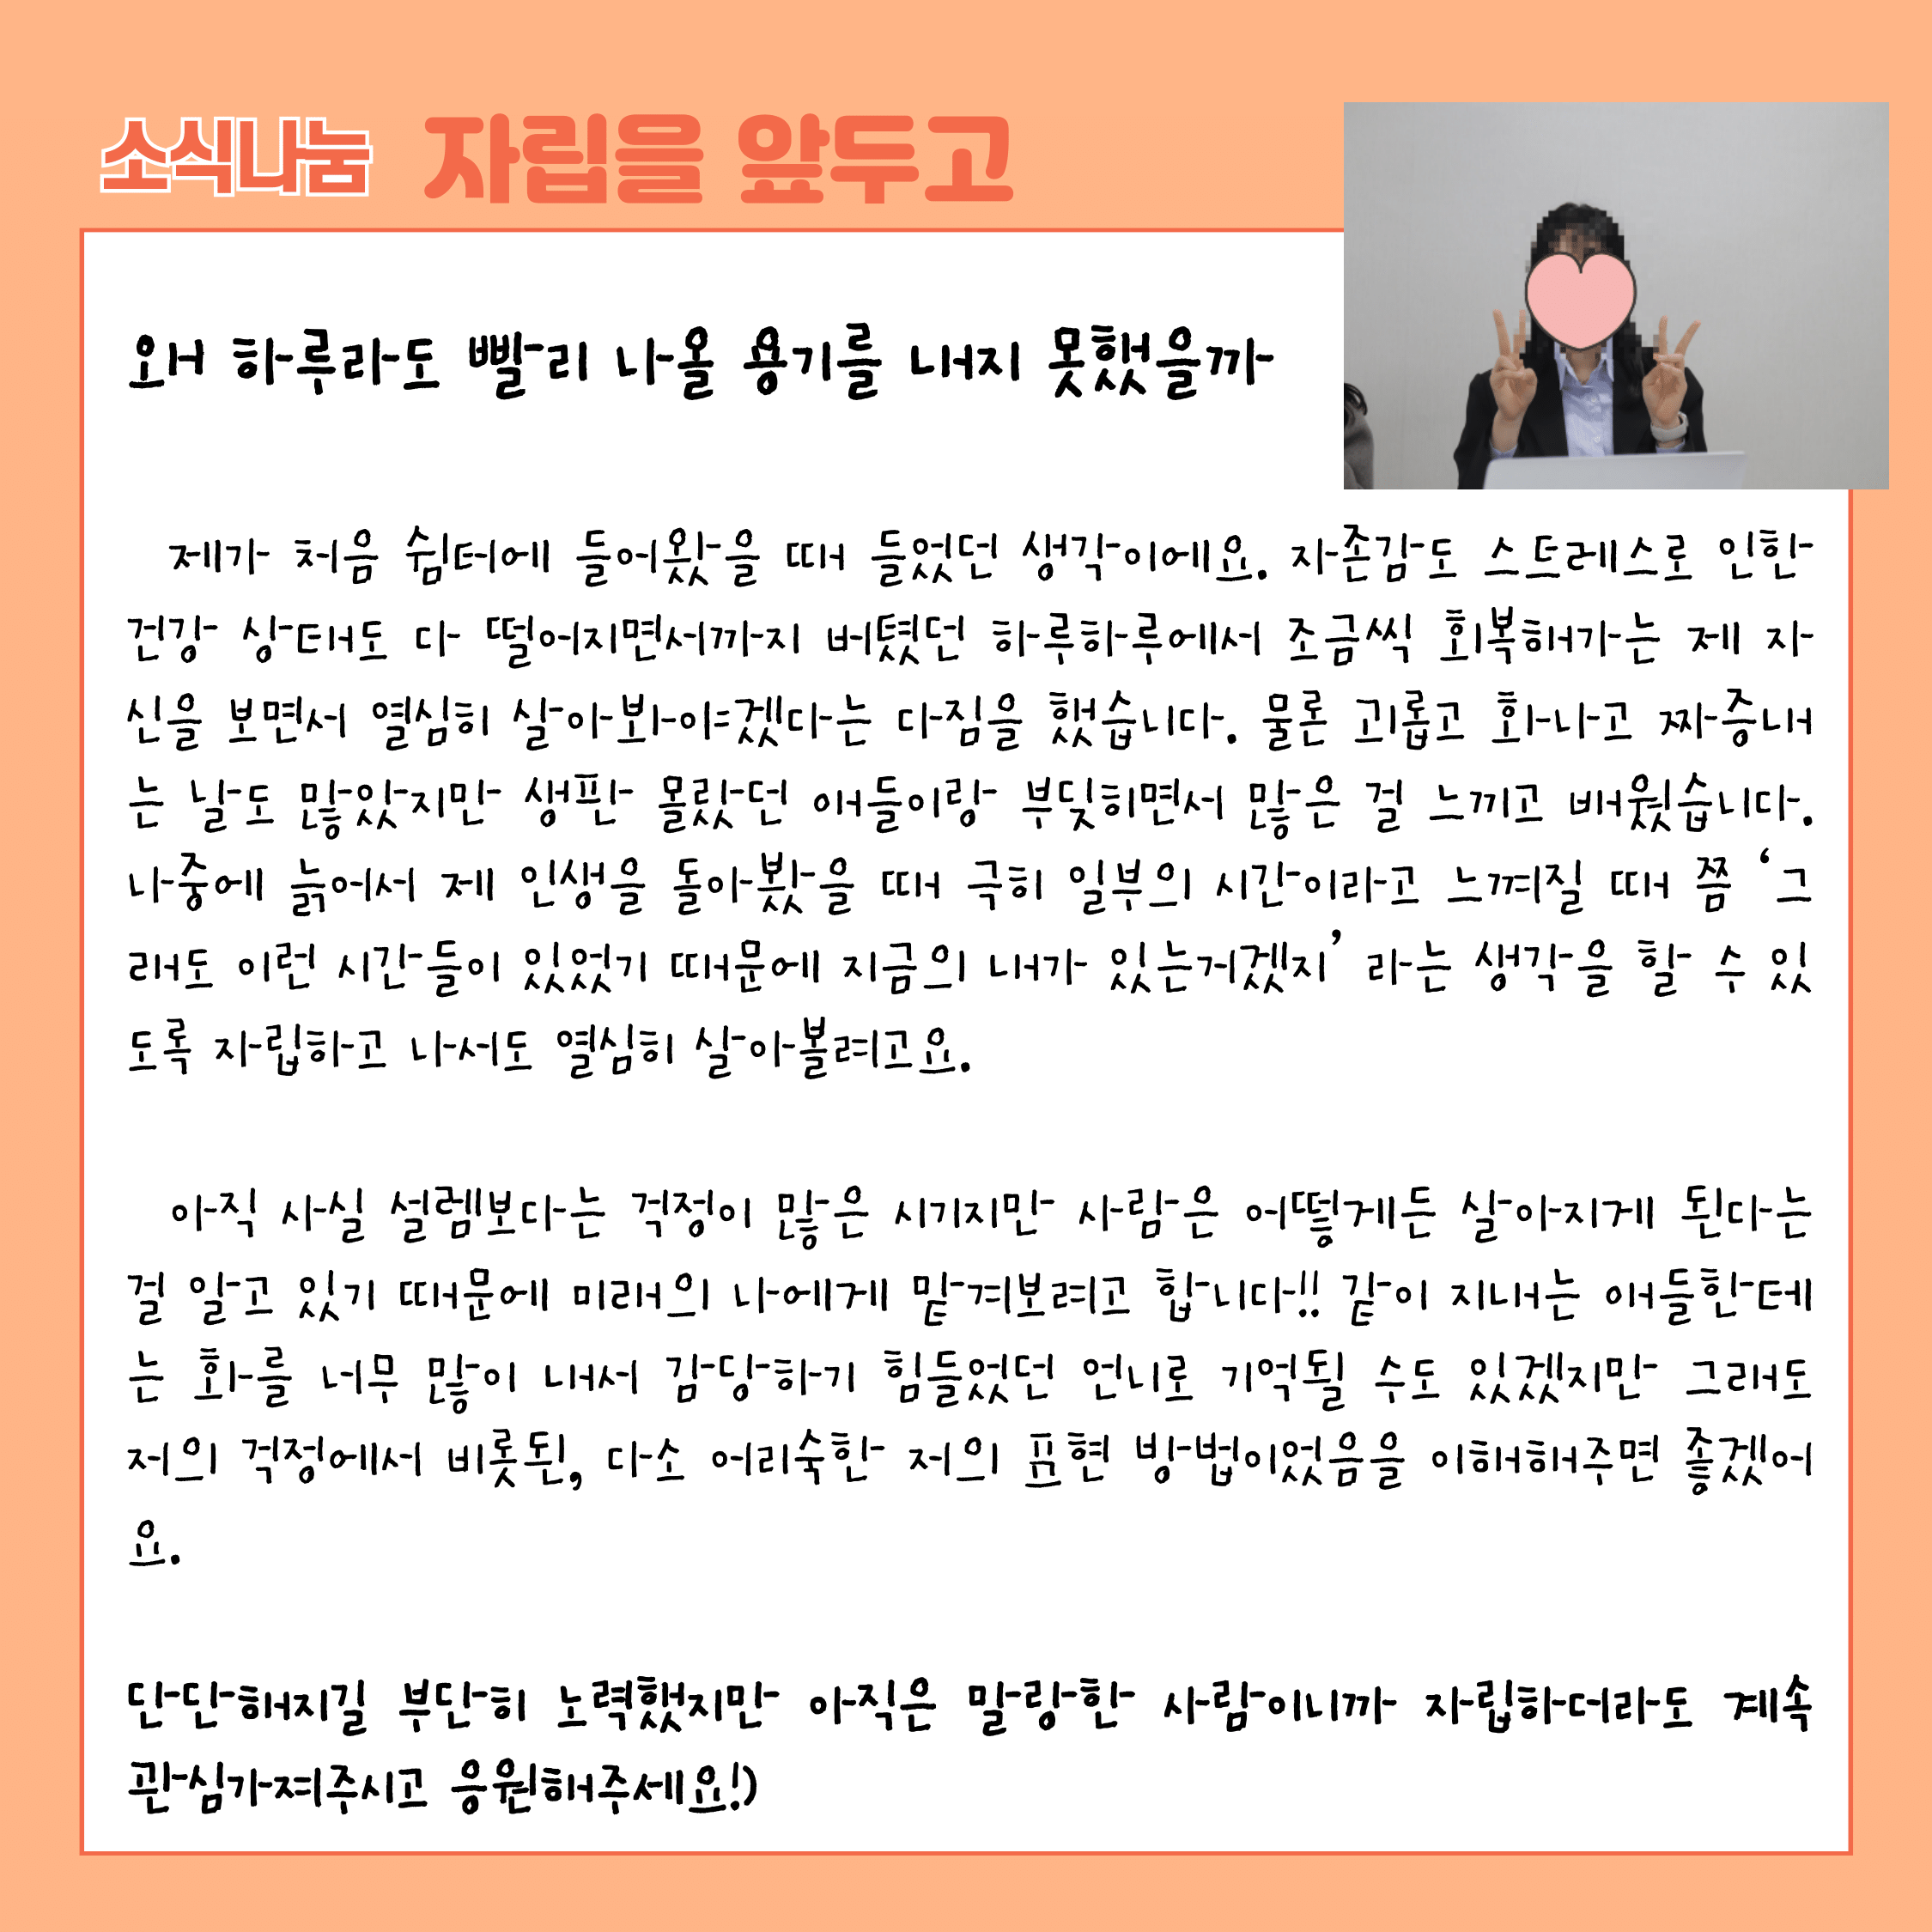 소식나눔 자립을 앞두고
왜 하루라도 빨리 나올 용기를 내지 못했을까
제가 처음 쉼터에 들어왔을 때 들었던 생각이에요. 자존감도 스트레스로 인한
건강 상태도 다 떨어지면서까지 버텼던 하루하루에서 조금씩 회복해가는 제 자
신을 보면서 열심히 살아보아야겠다는 다짐을 했습니다. 물론 괴롭고 화나고 짜증내
는 날도 많았지만 생판 몰랐던 애들이랑 부딪히면서 많은 걸 느끼고 배웠습니다.
나중에 늙어서 제 인생을 돌아봤을 때 극히 일부의 시간이라고 느껴질 때 쯤 ‘그
래도 이런 시간들이 있었기 때문에 지금의 내가 있는거겠지’ 라는 생각을 할 수 있
도록 자립하고 나서도 열심히 살아볼려고요.
아직 사실 설렘보다는 걱정이 많은 시기지만 사람은 어떻게든 살아지게 된다는
걸 알고 있기 때문에 미래의 나에게 맡겨보려고 합니다!! 같이 지내는 애들한테
는 화를 너무 많이 내서 감당하기 힘들었던 언니로 기억될 수도 있겠지만 그래도
저의 걱정에서 비롯된, 다소 어리숙한 저의 표현 방법이었음을 이해해주면 좋겠어
요.
단단해지길 부단히 노력했지만 아직은 말랑한 사람이니까 자립하더라도 계속
관심가져주시고 응원해주세요!)